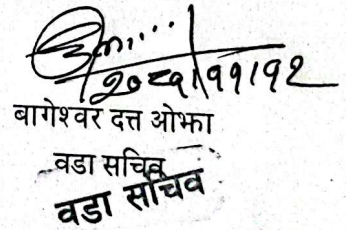 २०८१।११।१२
बागेश्वर दत्त ओझा
वडा सचिव
वडा सचिव